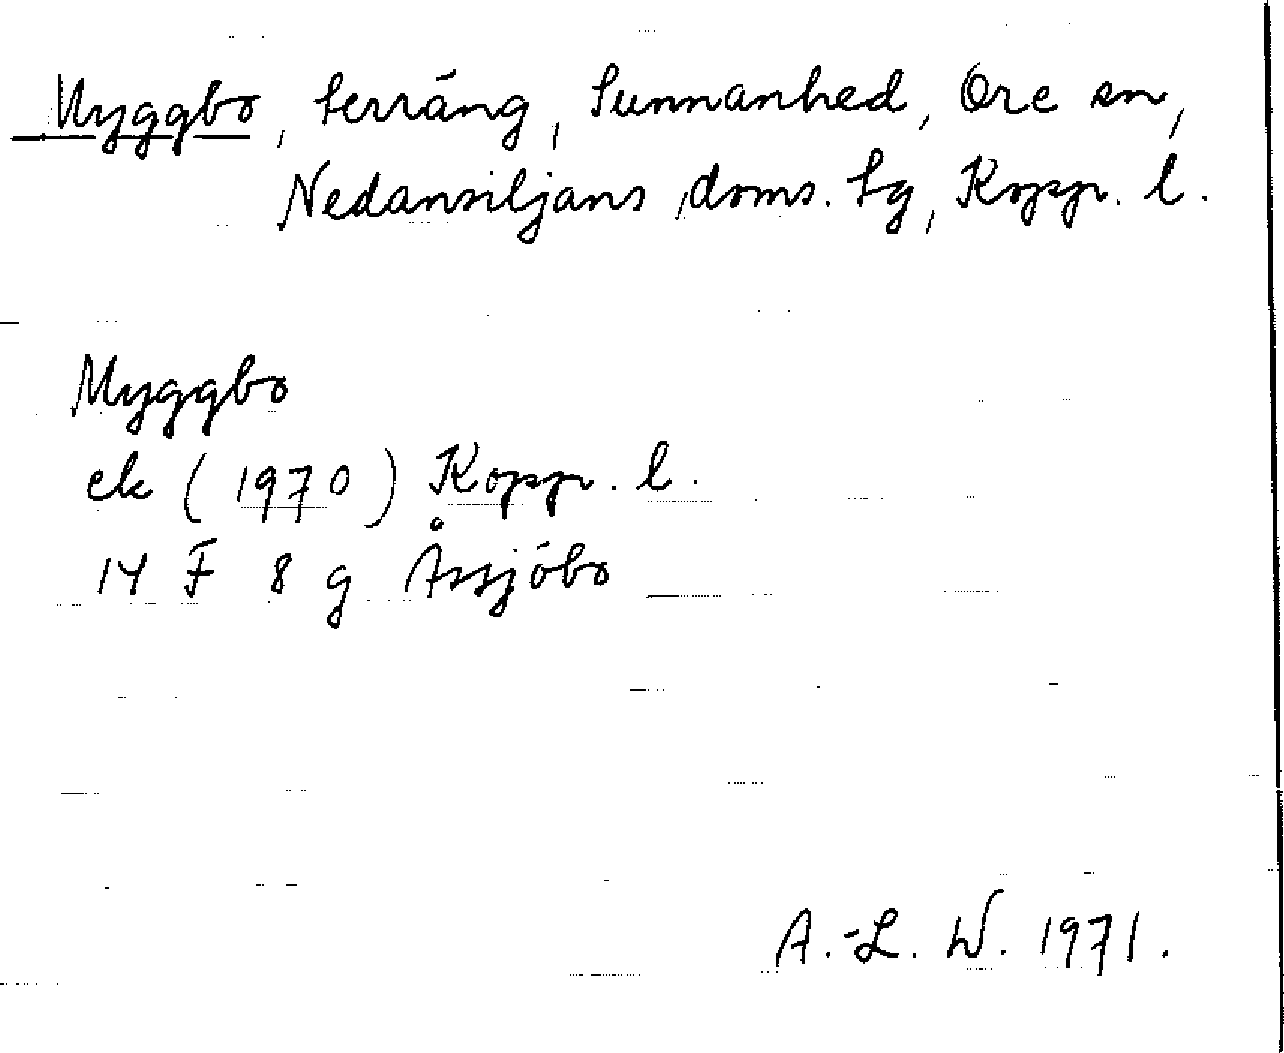 Myggbo, terräng, Sunnanhed, Ore sn,
Nedansiljans doms. tg, Kopp. l.
Myggbo
ek (1970) Kopp. l.
14 F 8 g Åssjöbo
A.-L. W. 1971.